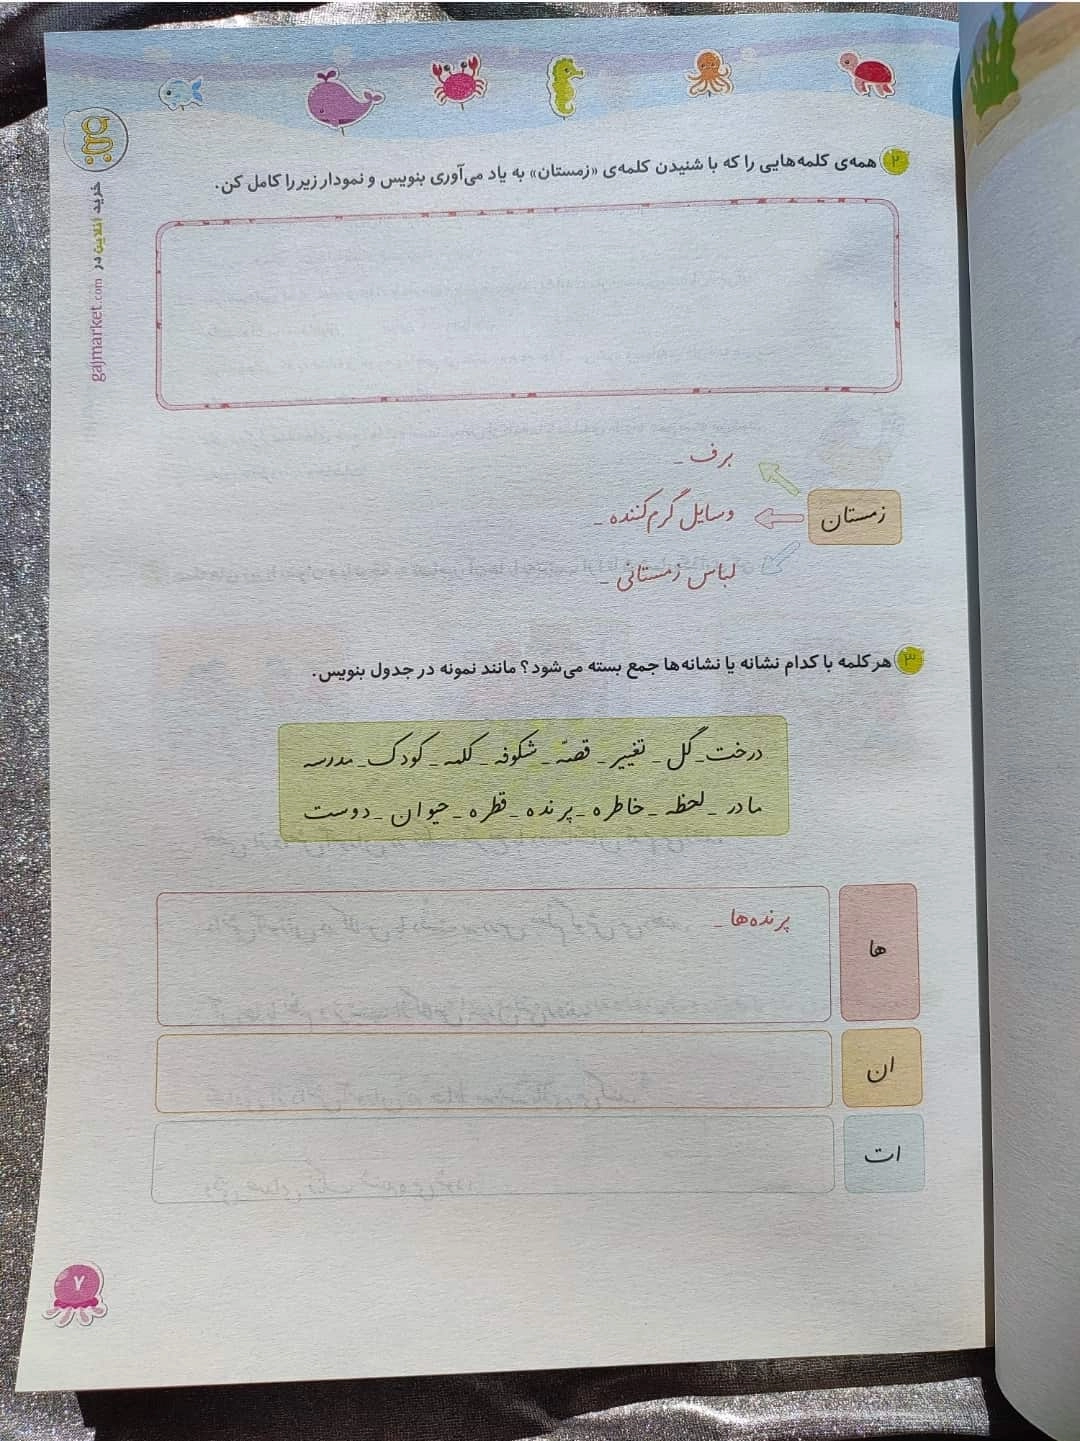 خرید آنلاین در gajmarket.com
۲ همه‌ی کلمه‌هایی را که با شنیدن کلمه‌ی «زمستان» به یاد می‌آوری بنویس و نمودار زیر را کامل کن.
برف _
زمستان
وسایل گرم‌کننده _
لباس زمستانی _
۳ هر کلمه با کدام نشانه یا نشانه‌ها جمع بسته می‌شود؟ مانند نمونه در جدول بنویس.
درخت _ گل _ تغییر _ قصّه _ شکوفه _ کلمه _ کودک _ مدرسه
مادر _ لحظه _ خاطره _ پرنده _ قطره _ حیوان _ دوست
ها
پرنده‌ها _
ان
ات
۷